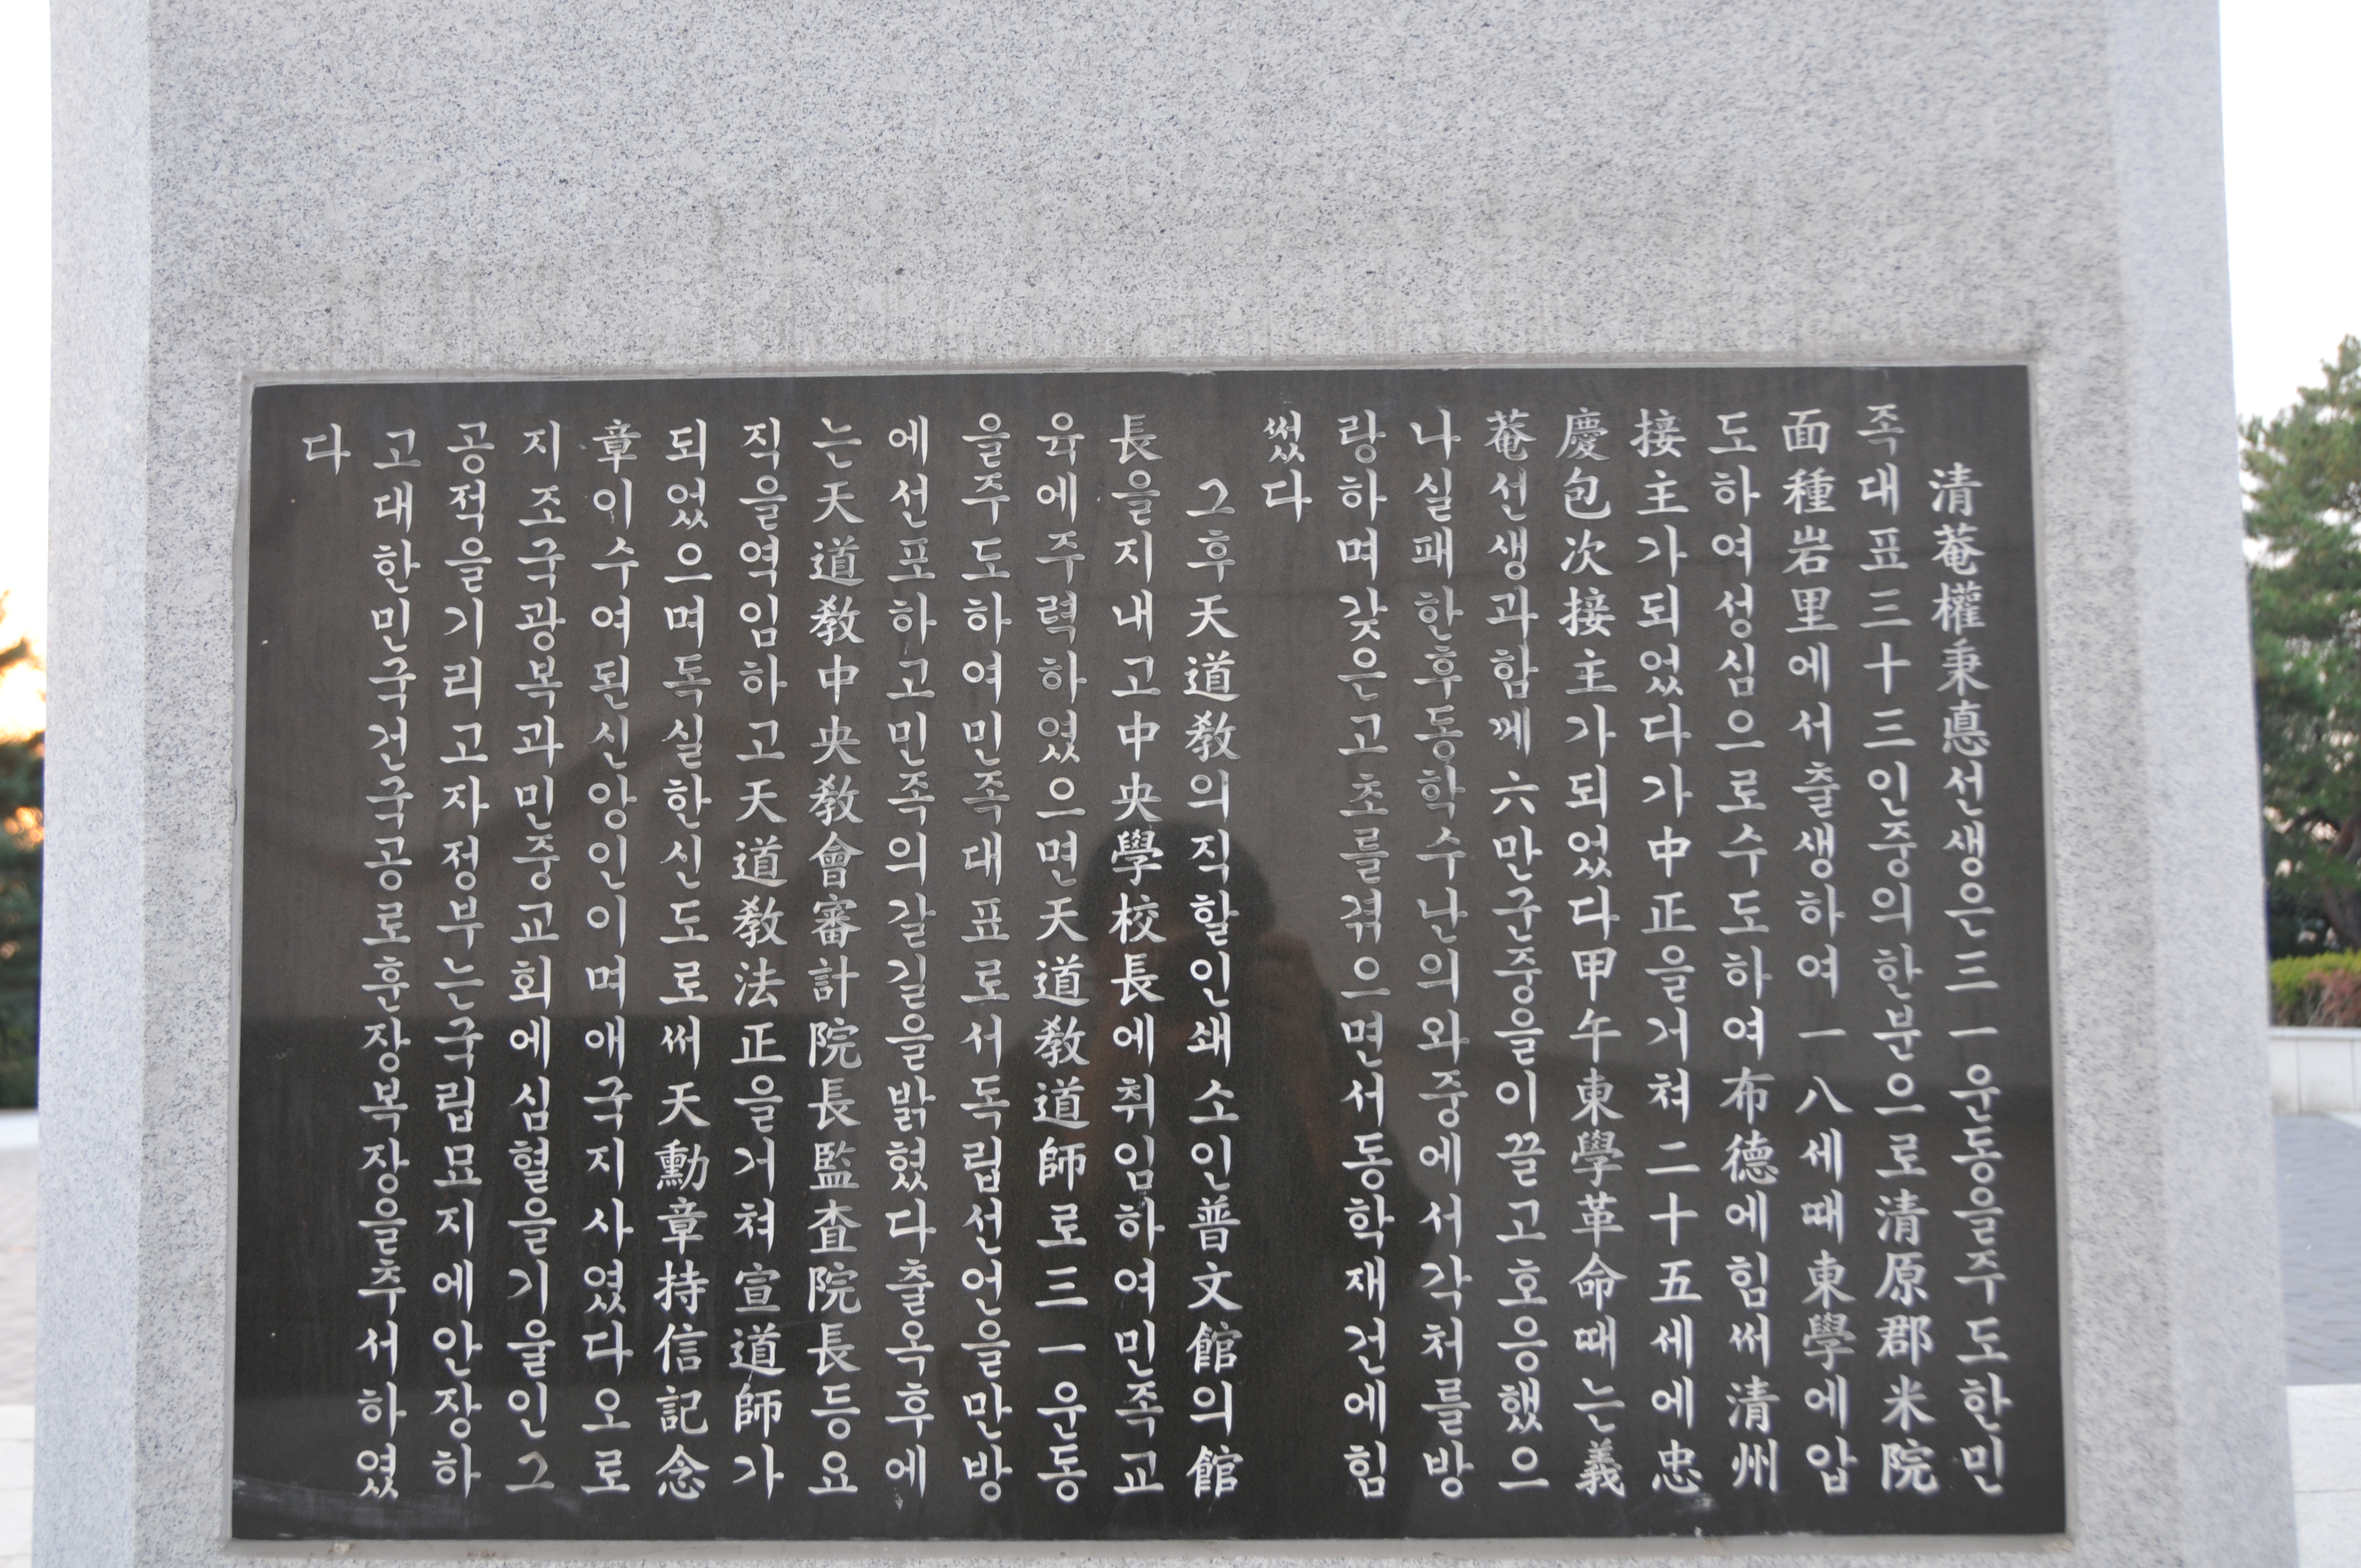 清菴權秉悳선생은三一운동을주도한민
족대표三十三인중의한분으로清原郡米院
面種岩里에서출생하여一八세때東學에입
도하여성심으로수도하여布德에힘써清州
接主가되었다가中正을거쳐二十五세에忠
慶包次接主가되었다甲午東學革命때는義
菴선생과함께六만군중을이끌고호응했으
나실패한후동학수난의와중에서각처를방
랑하며갖은고초를겪으면서동학재건에힘
썼다
그후天道教의직할인쇄소인普文館의館
長을지내고中央學校長에취임하여민족교
육에주력하였으면天道教道師로三一운동
을주도하여민족대표로서독립선언을만방
에선포하고민족의갈길을밝혔다출옥후에
는天道教中央教會審計院長監査院長등요
직을역임하고天道教法正을거쳐宣道師가
되었으며독실한신도로써天勳章持信記念
章이수여된신앙인이며애국지사였다오로
지조국광복과민중교회에심혈을기울인그
공적을기리고자정부는국립묘지에안장하
고대한민국건국공로훈장복장을추서하였
다